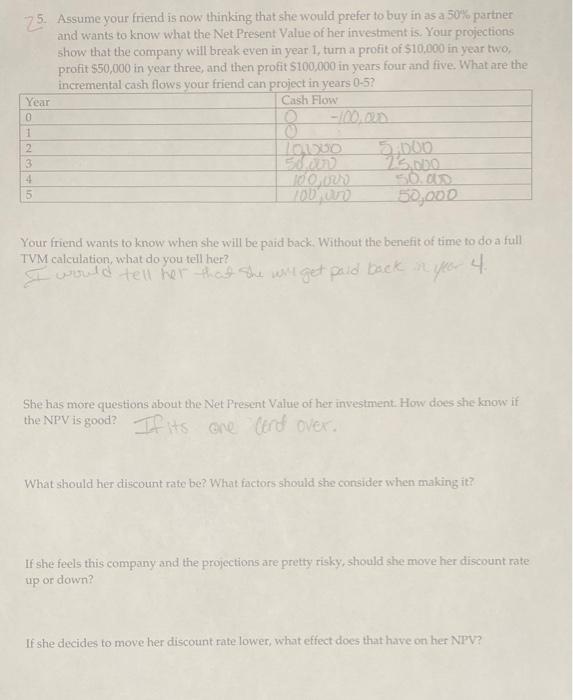 75. Assume your friend is now thinking that she would prefer to buy in as a 50% partner
and wants to know what the Net Present Value of her investment is. Your projections
show that the company will break even in year 1, turn a profit of $10,000 in year two,
profit $50,000 in year three, and then profit $100,000 in years four and five. What are the
incremental cash flows your friend can project in years 0-5?
Year Cash Flow
0 0 -100,000
1 0
2 10,000 5,000
3 50,000 25,000
4 100,000 50,000
5 100,000 50,000
Your friend wants to know when she will be paid back. Without the benefit of time to do a full
TVM calculation, what do you tell her?
I would tell her that she will get paid back in year 4.
She has more questions about the Net Present Value of her investment. How does she know if
the NPV is good? If its one over.
What should her discount rate be? What factors should she consider when making it?
If she feels this company and the projections are pretty risky, should she move her discount rate
up or down?
If she decides to move her discount rate lower, what effect does that have on her NPV?